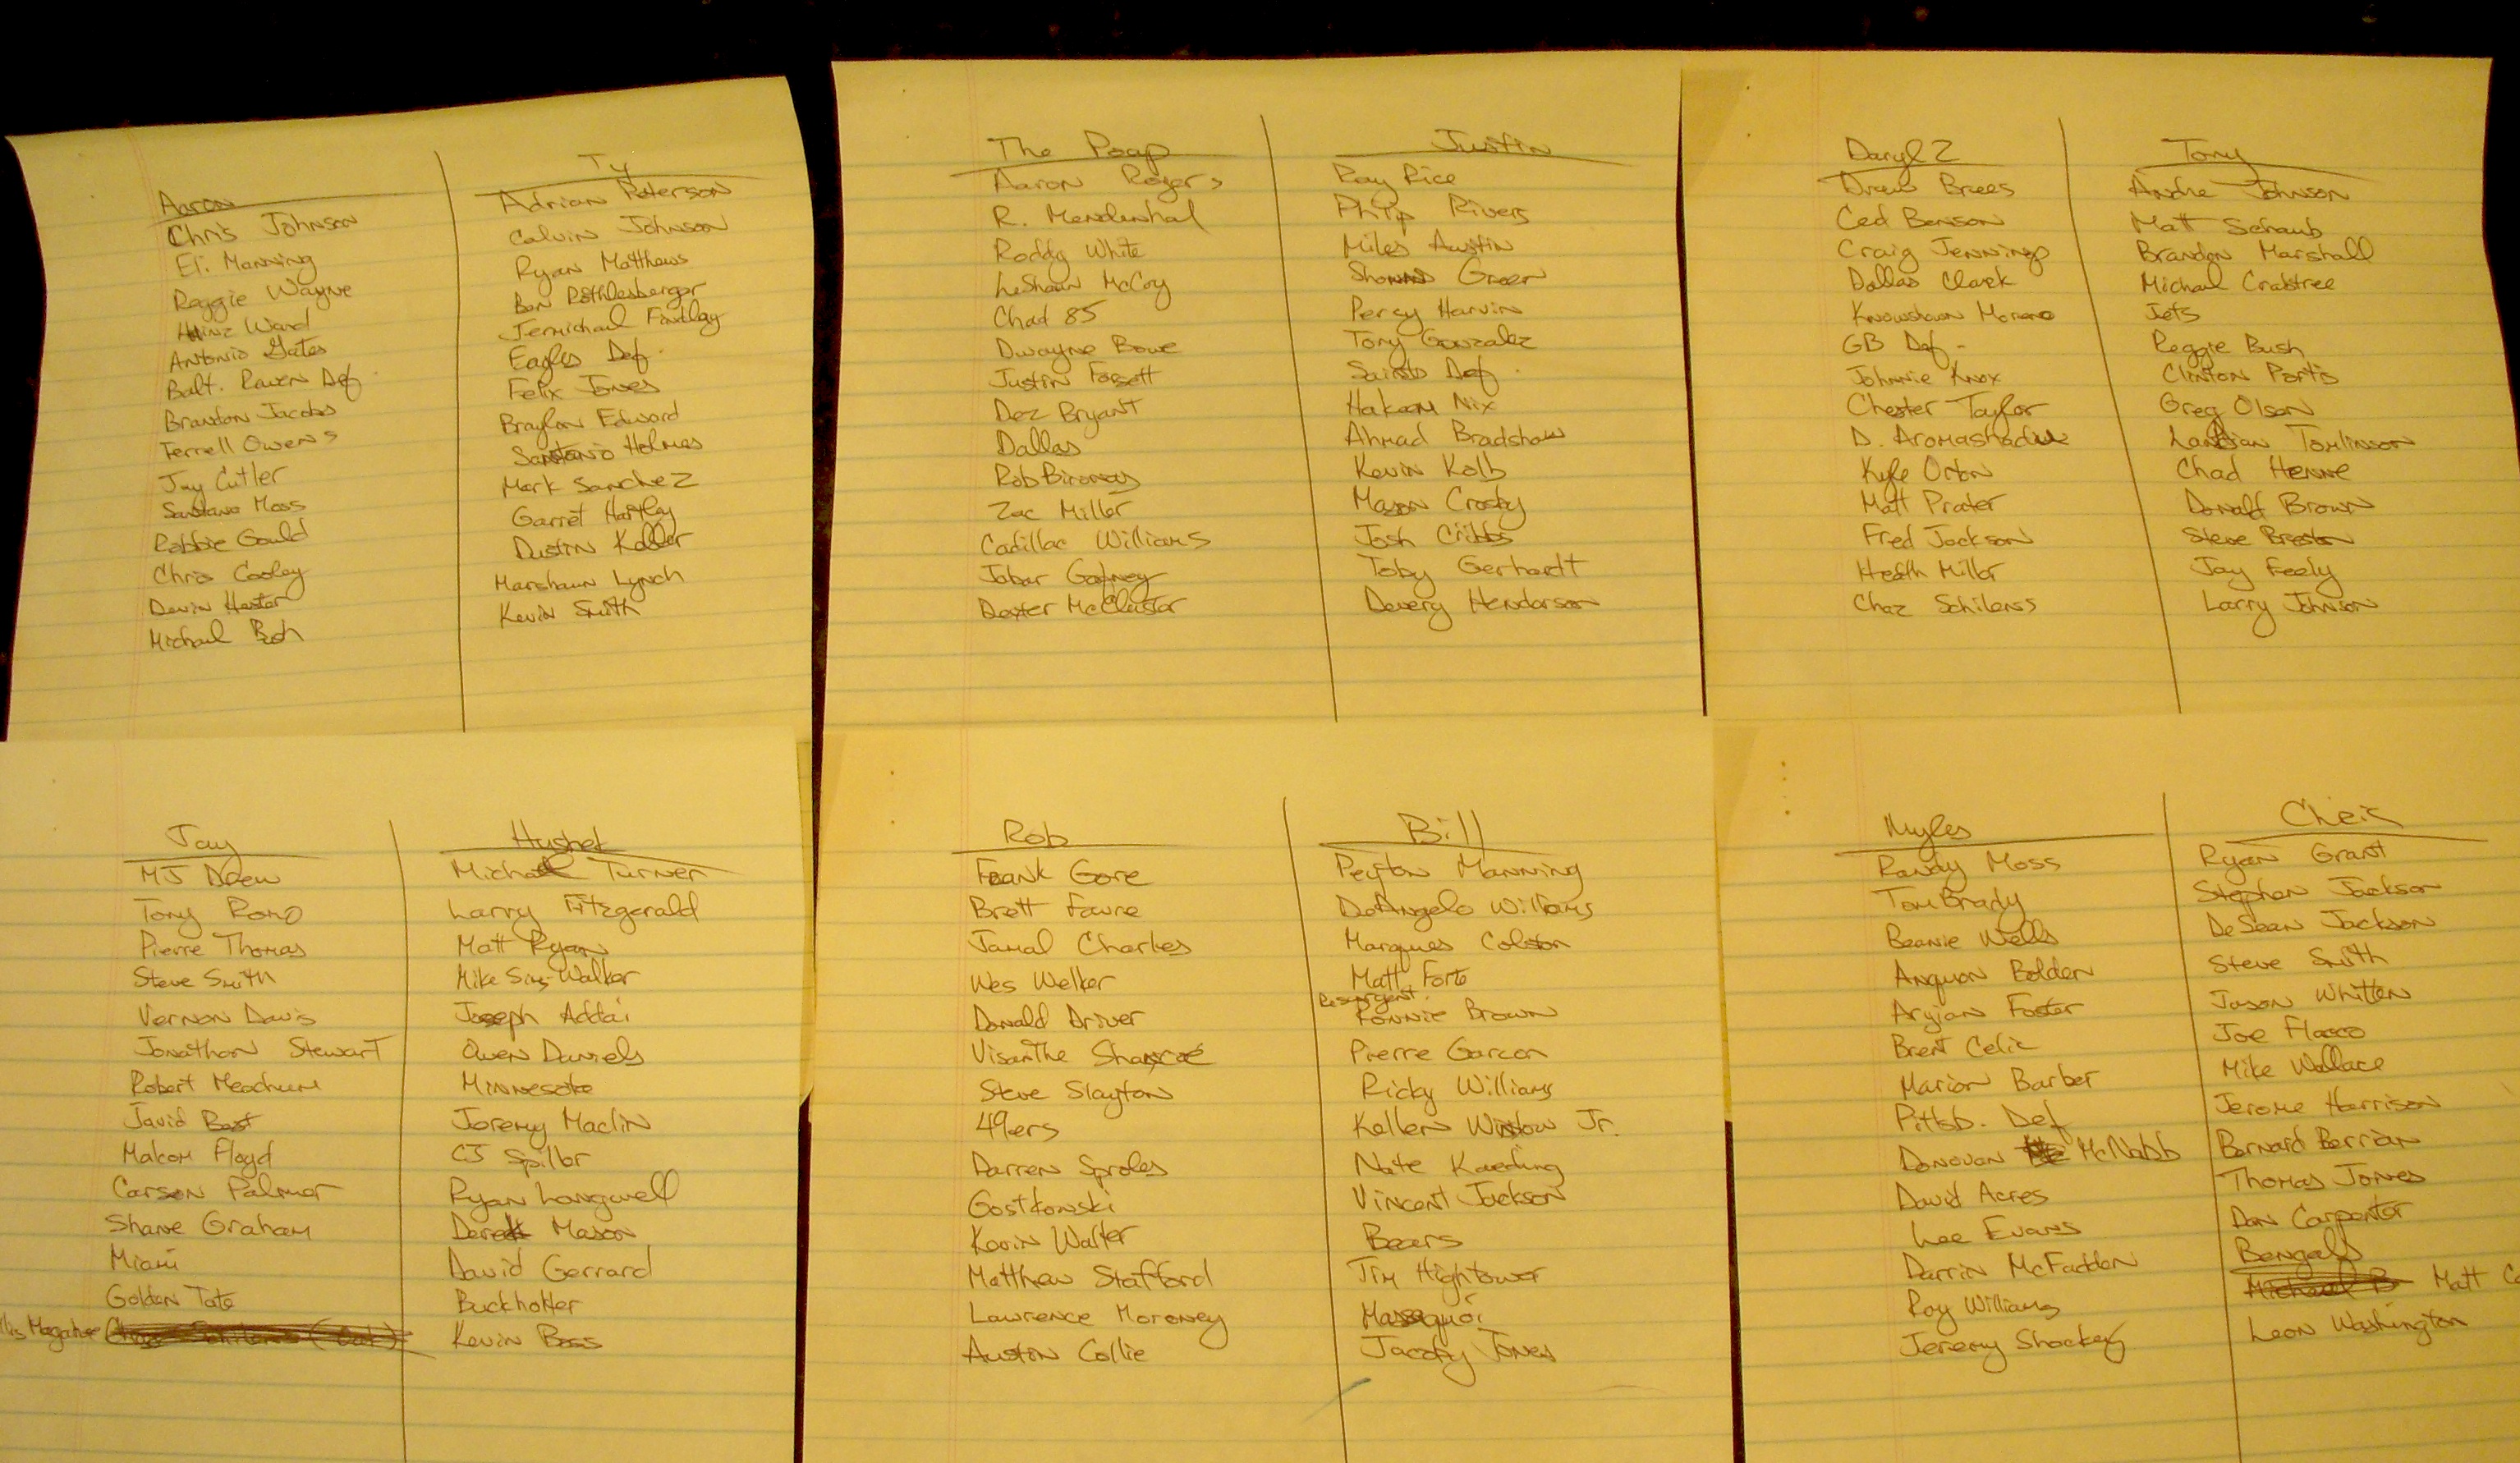 Aaron
Chris Johnson
Eli Manning
Reggie Wayne
Hinz Ward
Antonio Gates
Balt. Raven Def
Brandon Jacobs
Terrell Owens
Jay Cutler
Santana Moss
Robbie Gould
Chris Cooley
Devin Hester
Michael Bush
Ty
Adrian Peterson
Calvin Johnson
Ryan Matthews
Ben Rothlesberger
Jermichael Findlay
Eagles Def.
Felix Jones
Braylon Edward
Santonio Holmes
Mark Sanchez
Garret Hartley
Dustin Keller
Marshawn Lynch
Kevin Smith
The Poap
Aaron Rogers
R. Mendenhal
Roddy White
LeShaun McCoy
Chad 85
Dwayne Bowe
Justin Forsett
Dez Bryant
Dallas
Rob Bironas
Zac Miller
Cadillac Williams
Jabar Gafney
Dexter McCluster
Justin
Ray Rice
Philip Rivers
Miles Austin
Shonn Green
Percy Harvin
Tony Gonzalez
Saints Def.
Hakeem Nix
Ahmad Bradshaw
Kevin Kolb
Mason Crosby
Josh Cribbs
Toby Gerhardt
Devery Henderson
Daryl Z
Drew Brees
Ced Benson
Craig Jennings
Dallas Clark
Knowshown Moreno
GB Def -
Johnnie Knox
Chester Taylor
D. Aromashadu
Kyle Orton
Matt Prater
Fred Jackson
Heath Miller
Chaz Schilens
Tony
Andre Johnson
Matt Schaub
Brandon Marshall
Michael Crabtree
Jets
Reggie Bush
Clinton Portis
Greg Olson
Tomlinson
Chad Henne
Donald Brown
Steve Breston
Jay Feely
Larry Johnson
Jay
MJ Drew
Tony Romo
Pierre Thomas
Steve Smith
Vernon Davis
Jonathan Stewart
Robert Meachum
Javid Best
Malcom Floyd
Carson Palmer
Shane Graham
Miami
Golden Tate
Magahee
Hyshek
Michael Turner
Larry Fitzgerald
Matt Ryan
Mike Sims-Walker
Joseph Addai
Owen Daniels
Minnesota
Jeremy Maclin
CJ Spiller
Ryan Longwell
Derek Mason
David Gerrard
Buckholter
Kevin Boss
Rob
Frank Gore
Brett Favre
Jamal Charles
Wes Welker
Donald Driver
Visanthe
Steve Slayton
49ers
Darren Sproles
Gostkowski
Kevin Walter
Matthew Stafford
Lawrence Moroney
Austin Collie
Bill
Peyton Manning
DeAngelo Williams
Marques Colston
Matt Forte
Resurgent
Ronnie Brown
Pierre Garcon
Ricky Williams
Kellen Winslow Jr.
Nate Kaeding
Vincent Jackson
Bears
Tim Hightower
Massaquoi
Jacoby Jones
Myles
Randy Moss
Tom Brady
Beanie Wells
Anquon Bolden
Aryian Foster
Brent Celic
Marion Barber
Pittsb. Def
Donovan McNabb
David Acres
Lee Evans
Darrin McFadden
Roy Williams
Jeremy Shockey
Chris
Ryan Grant
Stephen Jackson
DeSean Jackson
Steve Smith
Jason Whitten
Joe Flacco
Mike Wallace
Jerome Harrison
Bernard Berrian
Thomas Jones
Dan Carpenter
Bengals
Michael B Matt
Leon Washington